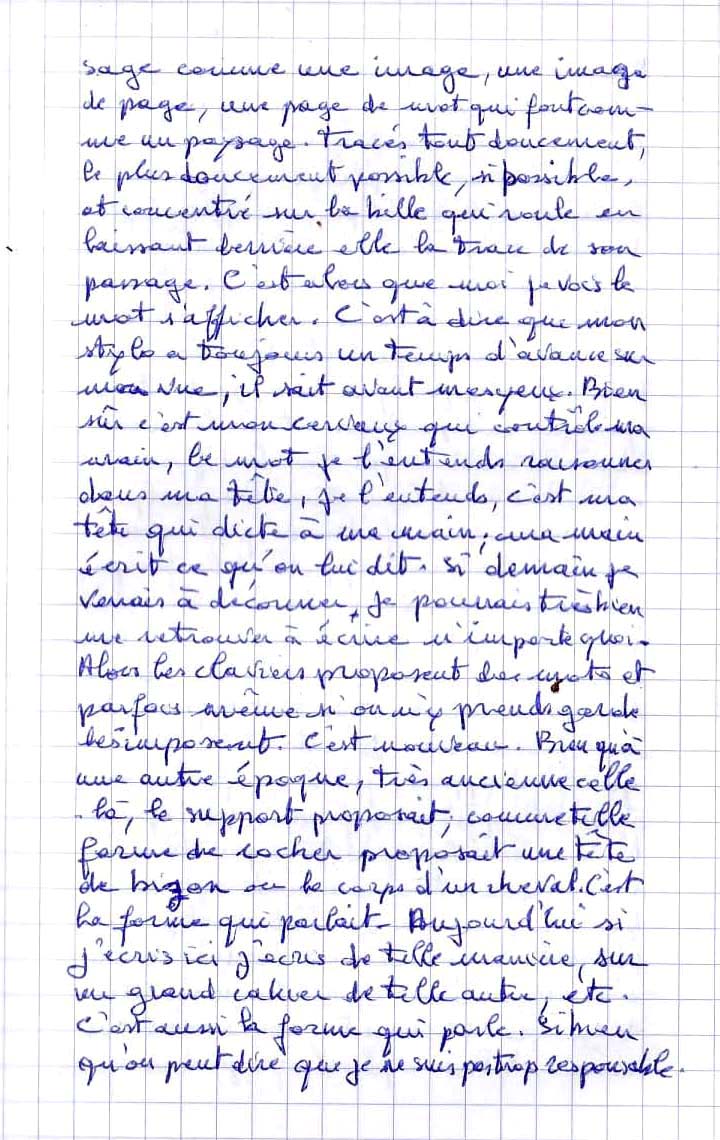 sage comme une image, une image
de page, une page de mot qui font com-
me un paysage. Tracés tout doucement,
le plus doucement possible, si possible,
et concentré sur la bille qui roule en
laissant derrière elle la trace de son
passage. C'est alors que moi je vois le
mot s'afficher. C'est à dire que mon
stylo a toujours un temps d'avance sur
ma vue, il sait avant mes yeux. Bien
sûr c'est mon cerveau qui contrôle ma
main, le mot je l'entends raisonner
dans ma tête, je l'entends, c'est ma
tête qui dicte à ma main; ma main
écrit ce qu'on lui dit. Si demain je
venais à déconner, je pourrais très bien
me retrouver à écrire n'importe quoi.
Alors les claviers proposent des mots et
parfois même si on n'y prends garde
les imposent. C'est nouveau. Bien qu'à
une autre époque, très ancienne celle
-là, le support proposait, comme telle
forme de rocher proposait une tête
de bison ou le corps d'un cheval. C'est
la forme qui parlait. Aujourd'hui si
j'écris ici j'écris de telle manière, sur
un grand cahier de telle autre, etc.
C'est aussi la forme qui parle. Si bien
qu'on peut dire que je ne suis pas trop responsable.